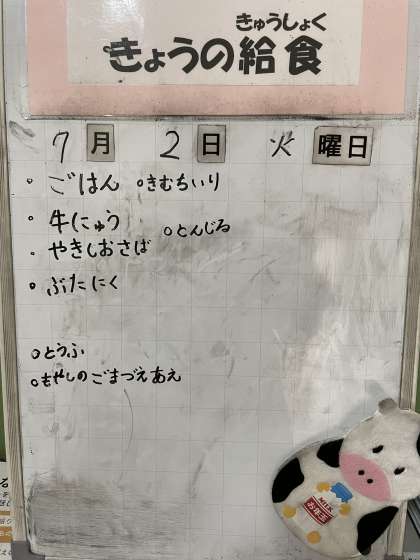 きゅうしょく
きょうの給食
7月 2日 火曜日
・ごはん ○きむちいり
・牛にゅう
○とんじる
・やきしおさば
・ぶたにく
○とうふ
○もやしのごまづえあえ
MILK
お年玉